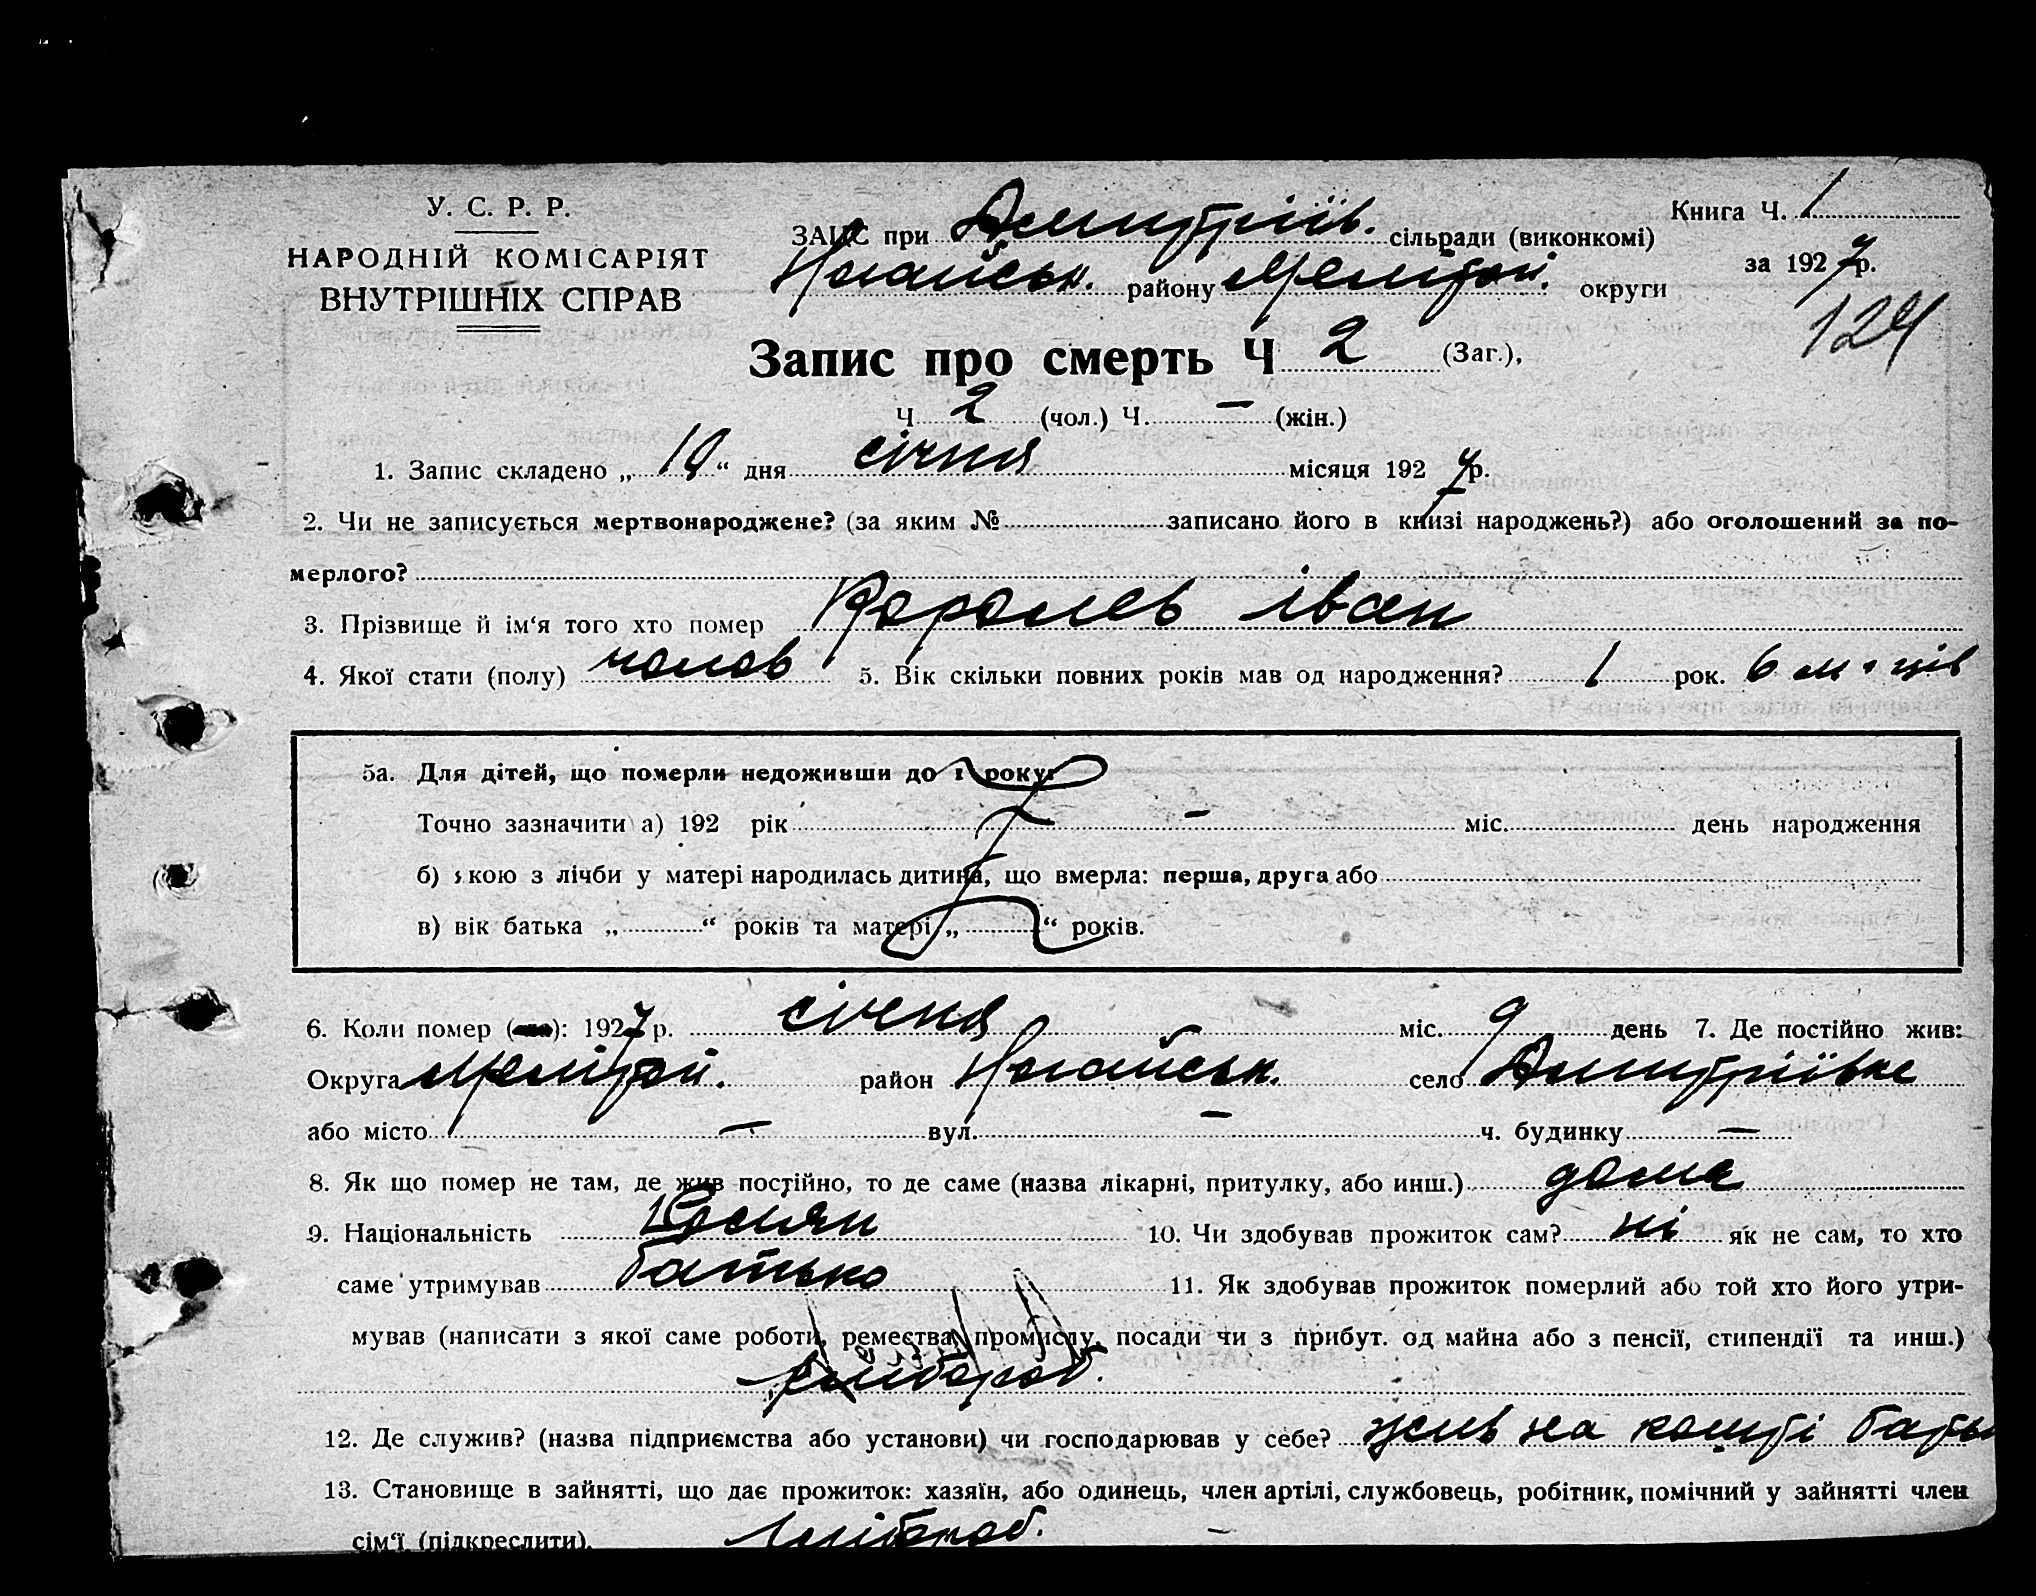 У. С. Р. Р.
НАРОДНІЙ КОМІСАРІЯТ
ВНУТРІШНІХ СПРАВ
Книга Ч. 1
ЗАГС при Дмитріїв. сільради (виконкомі)
за 1927р.
Ногайськ. району Мелітоп. округи
124
Запис про смерть Ч 2 (Заг.),
Ч 2 (чол.) Ч. — (жін.)
1. Запис складено „10“ дня січня місяця 1927р.
2. Чи не записується мертвонароджене? (за яким № записано його в книзі народжень?) або оголошений за по-
мерлого?
3. Прізвище й ім'я того хто помер Королев Іван
4. Якої стати (полу) чолов 5. Вік скільки повних років мав од народження? 1 рок. 6 м-ців
5а. Для дітей, що померли недоживши до 1 року:
Точно зазначити а) 192 рік — міс. день народження
б) якою з лічби у матері народилась дитина, що вмерла: перша, друга або
в) вік батька „ “ років та матері „ “ років.
6. Коли помер (ла): 1927 р. січня міс. 9 день 7. Де постійно жив:
Округа Мелітоп. район Ногайськ. село Дмитріївка
або місто — вул. — ч. будинку —
8. Як що помер не там, де жив постійно, то де саме (назва лікарні, притулку, або инш.) дома
9. Національність Росіян 10. Чи здобував прожиток сам? ні як не сам, то хто
саме утримував батько 11. Як здобував прожиток померлий або той хто його утри-
мував (написати з якої саме роботи, ремества, промислу, посади чи з прибут. од майна або з пенсії, стипендії та инш.)
хлібороб.
12. Де служив? (назва підприємства або установи) чи господарював у себе? жив на кошті батьк
13. Становище в зайнятті, що дає прожиток: хазяїн, або одинець, член артілі, службовець, робітник, помічний у зайнятті член
сім'ї (підкреслити). хлібороб.